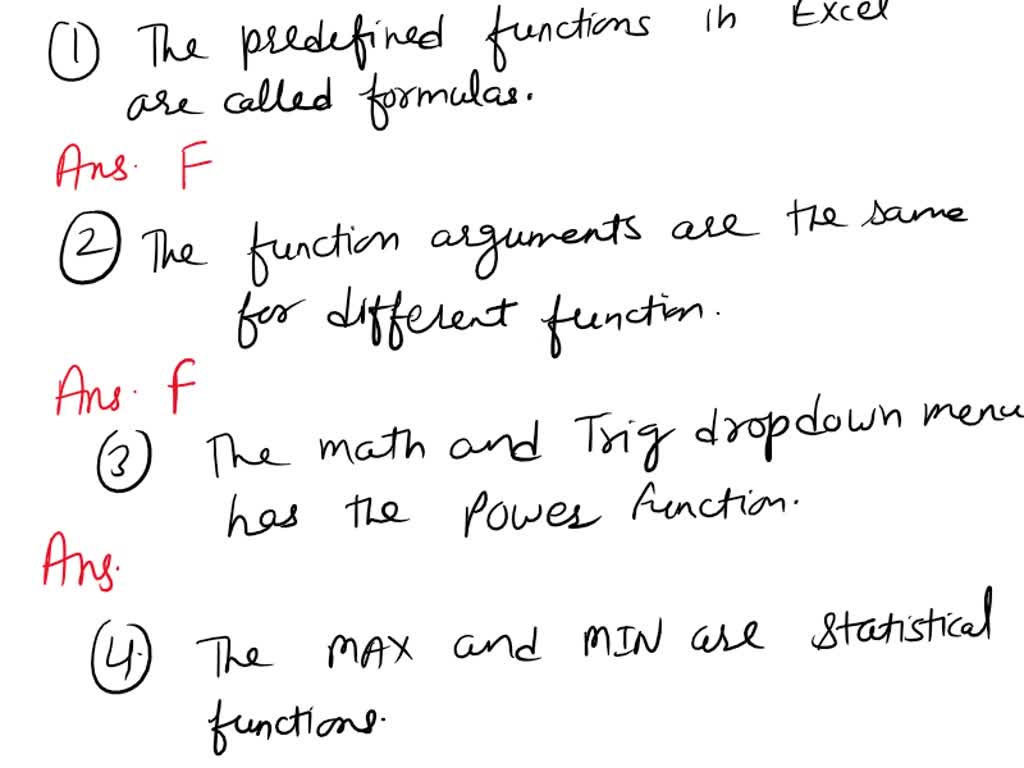 ① The predefined functions in Excel
are called formulas.
Ans. F
② The function arguments are the same
for different function.
Ans. F
③ The math and Trig dropdown menu
has the Power function.
Ans.
④. The MAX and MIN are statistical
functions.